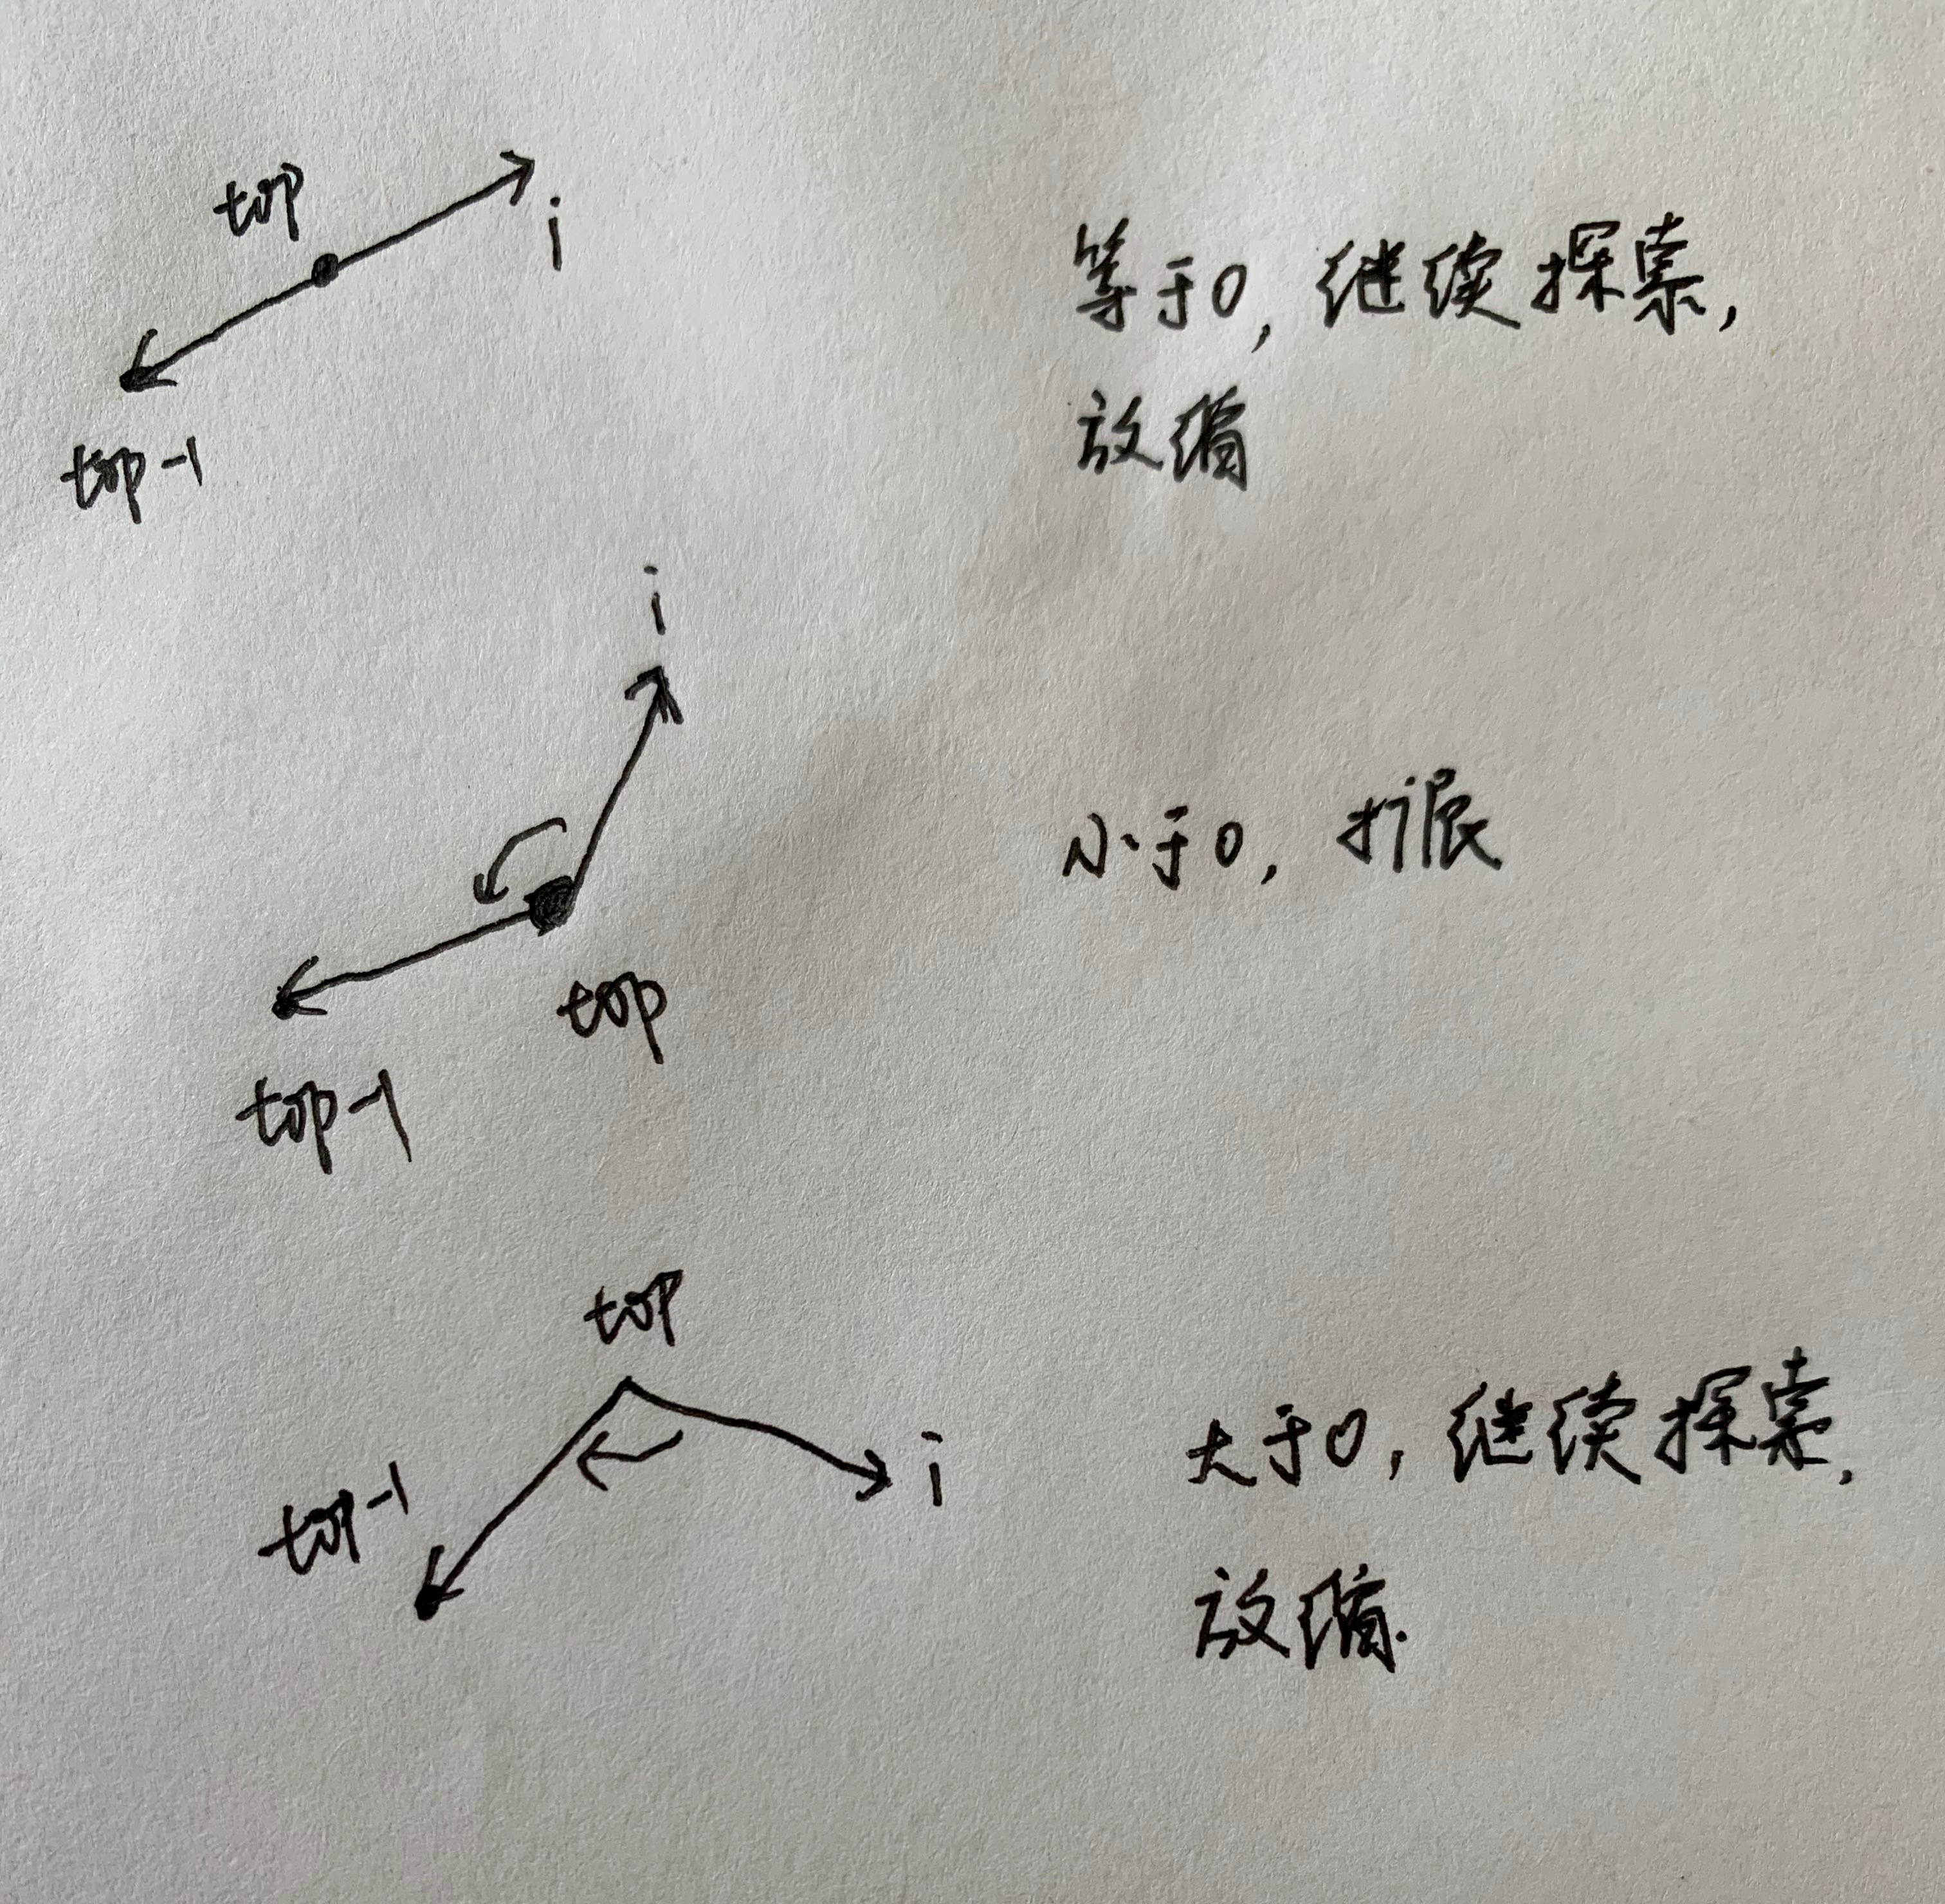 top
i
等于0, 继续探索,
放缩
top-1
i
小于0, 扩展
top
top-1
top
大于0, 继续探索,
i
top-1
放缩.